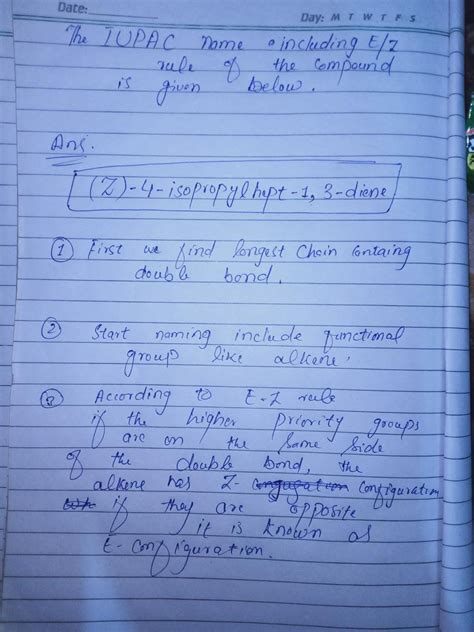 Date:
Day: M T W T F S
The IUPAC name including E/Z
rule of the compound
is given below.
Ans.
(Z)-4-isopropylhept-1,3-diene
① First we find longest Chain Containg
double bond.
② Start naming include functional
group like alkene.
③ According to E-Z rule
if the higher priority groups
are on the same side
of the double bond, the
alkene has Z- configuration
if they are opposite
it is known as
E-configuration.